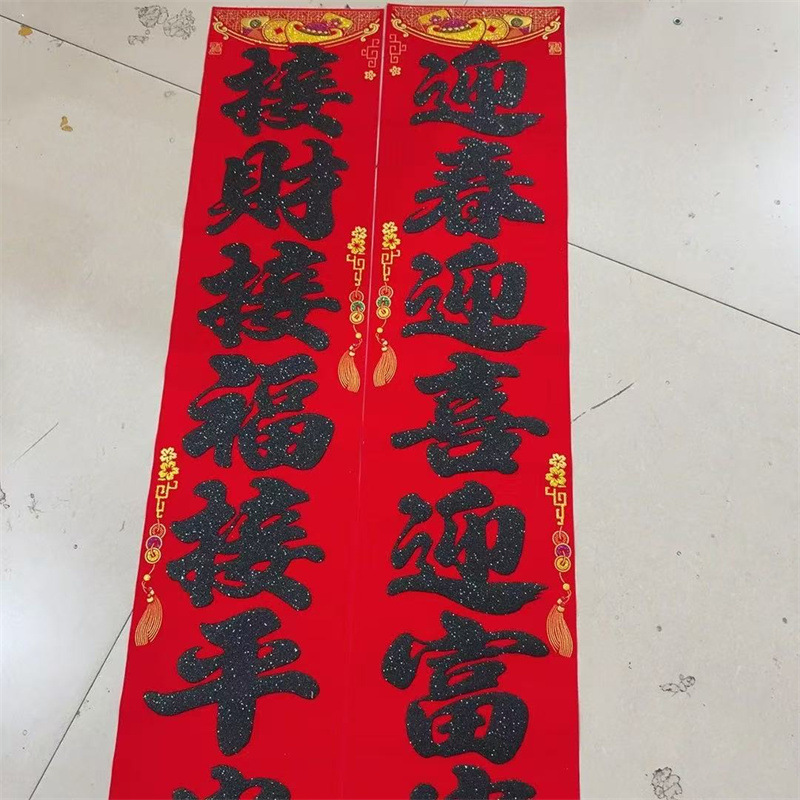 迎春迎喜迎富
接財接福接平